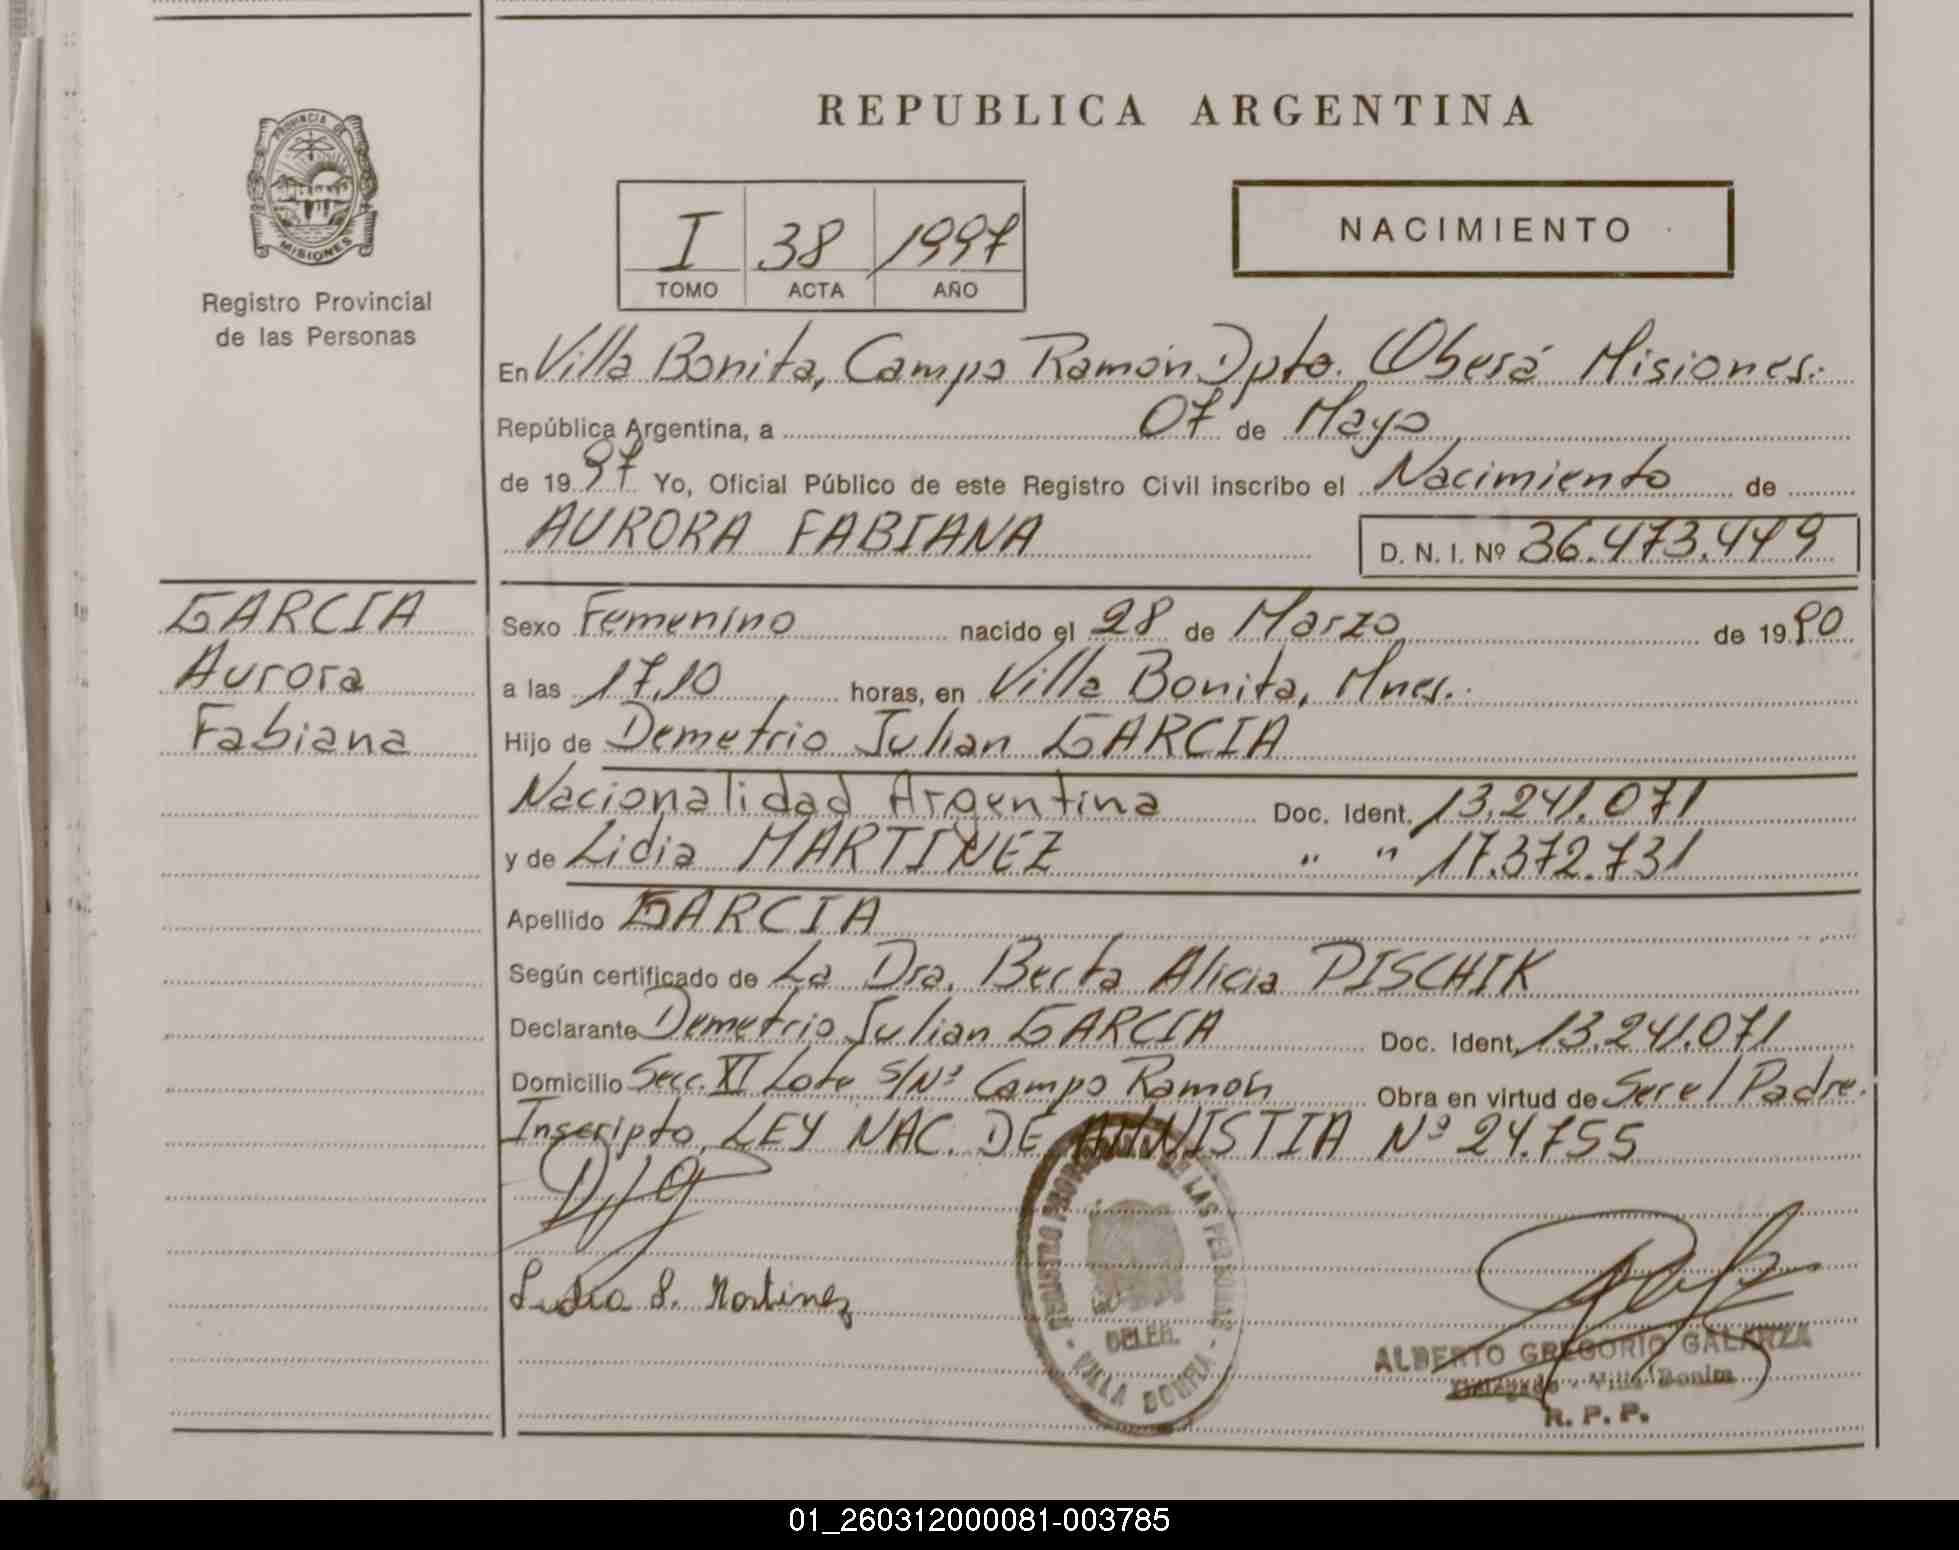 REPUBLICA ARGENTINA
PROVINCIA DE
MISIONES
Registro Provincial
de las Personas
I 38 1997
TOMO ACTA AÑO
NACIMIENTO
En Villa Bonita, Campo Ramón Dpto. Oberá Misiones.
República Argentina, a 07 de Mayo
de 1997 Yo, Oficial Público de este Registro Civil inscribo el Nacimiento de
AURORA FABIANA D. N. I. Nº 36.473.449
GARCIA
Aurora
Fabiana
Sexo Femenino nacido el 28 de Marzo de 1990
a las 17,10 horas, en Villa Bonita, Mnes.
Hijo de Demetrio Julian GARCIA
Nacionalidad Argentina Doc. Ident. 13.241.071
y de Lidia MARTINEZ " " 17.372.731
Apellido GARCIA
Según certificado de La Dra. Berta Alicia PISCHIK
Declarante Demetrio Julian GARCIA Doc. Ident. 13.241.071
Domicilio Secc. XI Lote S/Nº Campo Ramón Obra en virtud de Ser el Padre.
Inscripto, LEY NAC. DE AMNISTIA Nº 24.755
DJG
Lidia S. Martinez
REGISTRO DE LAS PERSONAS
DELEG.
- VILLA BONITA -
ALBERTO GREGORIO GALARZA
Delegado - Villa Bonita
R. P. P.
01_260312000081-003785